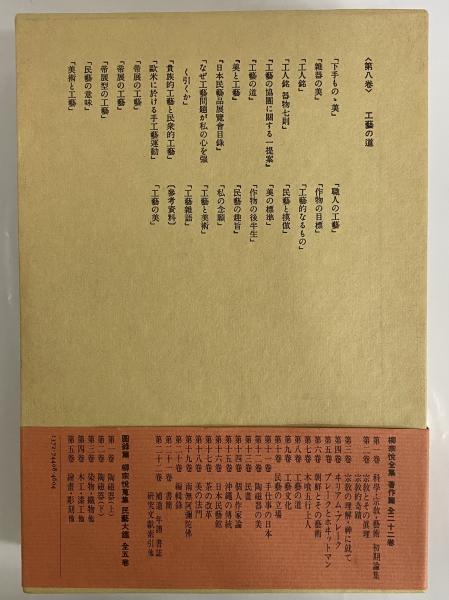 〈第八卷〉　工藝の道
『下手ものゝ美』
「雜器の美」
「工人銘」
「工人銘 器物七則」
『工藝の協團に關する一提案』
『工藝の道』
『美と工藝』
『日本民藝品展覽會目錄』
「なぜ工藝問題が私の心を強
く引くか」
「貴族的工藝と民衆的工藝」
「歐米に於ける手工藝運動」
「帝展の工藝」
「帝展の工藝」
「帝展型の工藝」
「民藝の意味」
「美術と工藝」
『職人の工藝』
「作物の目標」
「工藝的なるもの」
「民藝と摸倣」
「美の標準」
「作物の後半生」
『民藝の趣旨』
「私の念願」
「工藝と美術」
「工藝雜語」
〔參考資料〕
「工藝の美」
柳宗悅全集 著作篇 全二十二卷
第一卷　科學・宗敎・藝術　初期論集
第二卷　宗敎とその眞理
宗敎的奇蹟
第三卷　宗敎の理解・神に就て
第四卷　ヰリアム・ブレーク
第五卷　ブレークとホヰットマン
第六卷　朝鮮とその藝術
第七卷　木喰五行上人
第八卷　工藝の道
第九卷　工藝文化
第十卷　民藝の立場
第十一卷　手仕事の日本
第十二卷　陶磁器の美
第十三卷　民畫
第十四卷　個人作家論
第十五卷　沖繩の傳統
第十六卷　日本民藝館
第十七卷　茶の改革
第十八卷　美の法門
第十九卷　南無阿彌陀佛
第二十卷　編輯錄
第二十一卷　書簡
第二十二卷　補遺 年譜 書誌
硏究文獻索引他
圖錄篇　柳宗悅蒐集 民藝大鑑 全五卷
第一卷　陶磁器（上）
第二卷　陶磁器（下）
第三卷　染物・織物他
第四卷　木工・漆工他
第五卷　繪畫・彫刻他